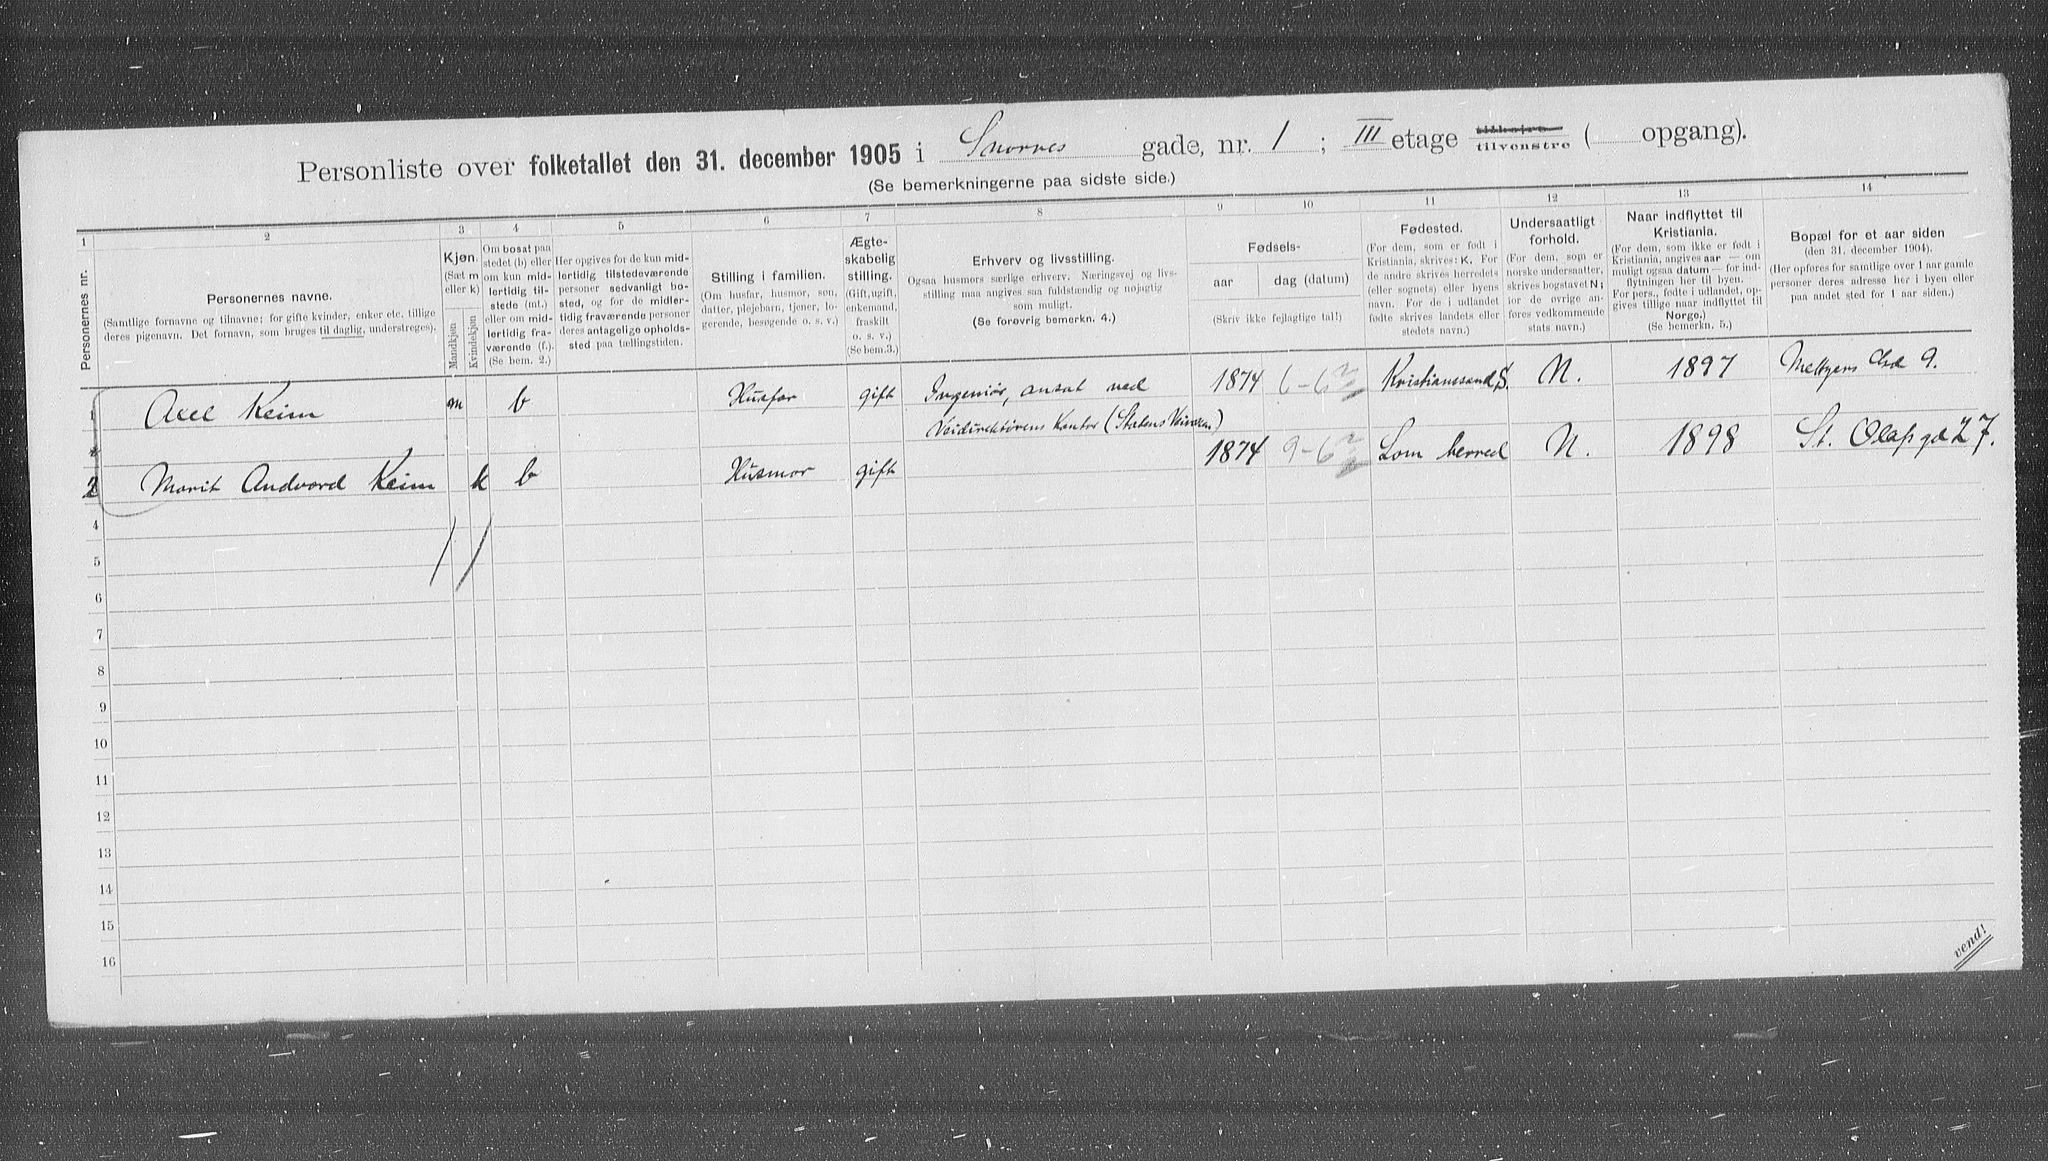 Personliste over folketallet den 31. december 1905 i Snorres gade, nr. 1 ; III etage tilhøire tilvenstre ( opgang).
(Se bemerkningerne paa sidste side.)
1 2 3 4 5 6 7 8 9 10 11 12 13 14
Personernes nr.
Personernes navne.
(Samtlige fornavne og tilnavne; for gifte kvinder, enker etc. tillige
deres pigenavn. Det fornavn, som bruges til daglig, understreges).
Kjøn.
(Sæt m
eller k)
Mandkjøn
Kvindekjøn
Om bosat paa
stedet (b) eller
om kun mid-
lertidig til-
stede (mt.)
eller om mid-
lertidig fra-
værende (f.).
(Se bem. 2.)
Her opgives for de kun mid-
lertidig tilstedeværende
personer sedvanligt bo-
sted, og for de midler-
tidig fraværende personer
deres antagelige opholds-
sted paa tællingstiden.
Stilling i familien.
(Om husfar, husmor, søn,
datter, plejebarn, tjener, lo-
gerende, besøgende o. s. v.)
Ægte-
skabelig
stilling.
(Gift, ugift,
enkemand,
fraskilt
o. s. v.)
(Se bem.3.)
Erhverv og livsstilling.
Ogsaa husmors særlige erhverv. Næringsvej og livs-
stilling maa angives saa fuldstændig og nøjagtig
som muligt.
(Se forøvrig bemerkn. 4.)
Fødsels-
aar dag (datum)
(Skriv ikke fejlagtige tal!)
Fødested.
(For dem, som er født i
Kristiania, skrives: K. For
de andre skrives herredets
(eller sognets) eller byens
navn. For de i udlandet
fødte skrives landets eller
stedets navn.)
Undersaatligt
forhold.
(For dem, som er
norske undersaatter,
skrives bogstavet N;
for de øvrige an-
føres vedkommende
stats navn.)
Naar indflyttet til
Kristiania.
(For dem, som ikke er født i
Kristiania, angives aar — om
muligt ogsaa datum — for ind-
flytningen her til byen.
For pers., fødte i udlandet, op-
gives tillige naar indflyttet til
Norge.)
(Se bemerkn. 5.)
Bopæl for et aar siden
(den 31. december 1904).
(Her opføres for samtlige over 1 aar gamle
personer deres adresse her i byen eller
paa andet sted for 1 aar siden.)
1 Axel Keim m b Husfar gift Ingeniør, ansat ved 1874 6-6 Kristianssand S. N. 1897 Meltzers Gade 9.
Veidirektørens Kontor (Statens Veivæsen)
2 Marit Andvord Keim k b Husmor gift 1874 9-6 Lom herred N. 1898 St. Olafs gd 27.
4
5
6
7
8
9
10
11
12
13
14
15
16
vend!